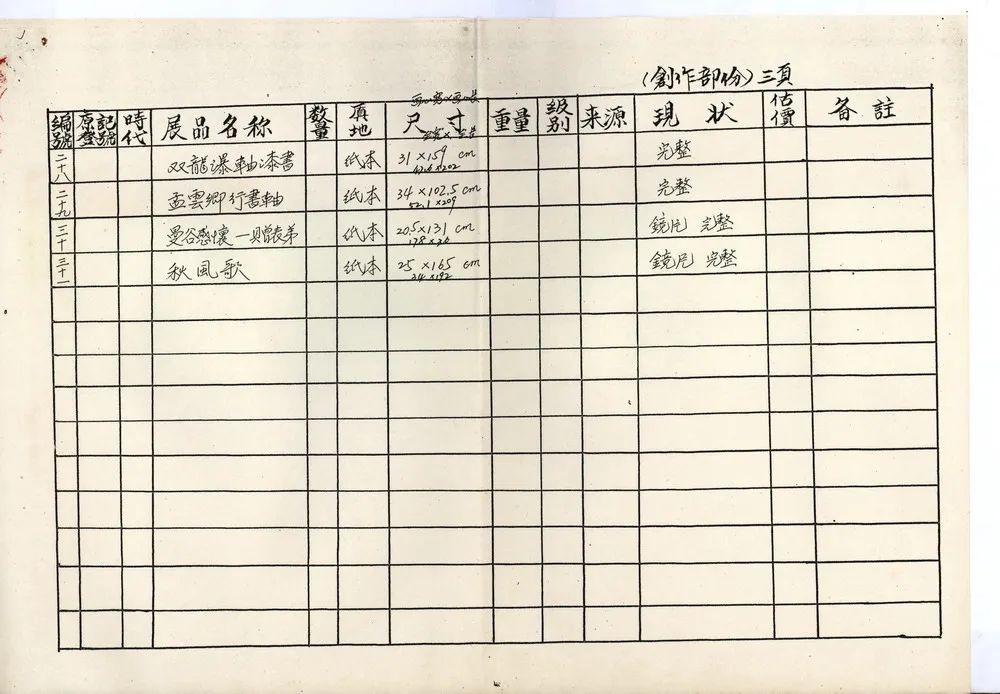 (創作部份)三頁
編號 原登記號 時代 展品名称 数量 質地 尺寸 重量 级别 来源 現状 估價 备註
二十八 双龍瀑軸漆書 纸本 31×159 cm 完整
二十九 孟雲卿行書軸 纸本 34×102.5 cm 完整
52.1×209
三十 曼谷感懷一贈表弟 纸本 20.5×131 cm 鏡片 完整
三十一 秋風歌 纸本 25×165 cm 鏡片 完整
34×192